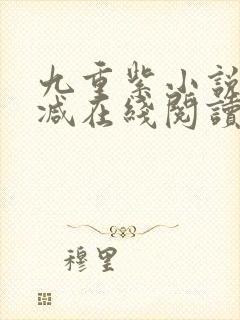 九重紫小说
减在线阅读
穆里